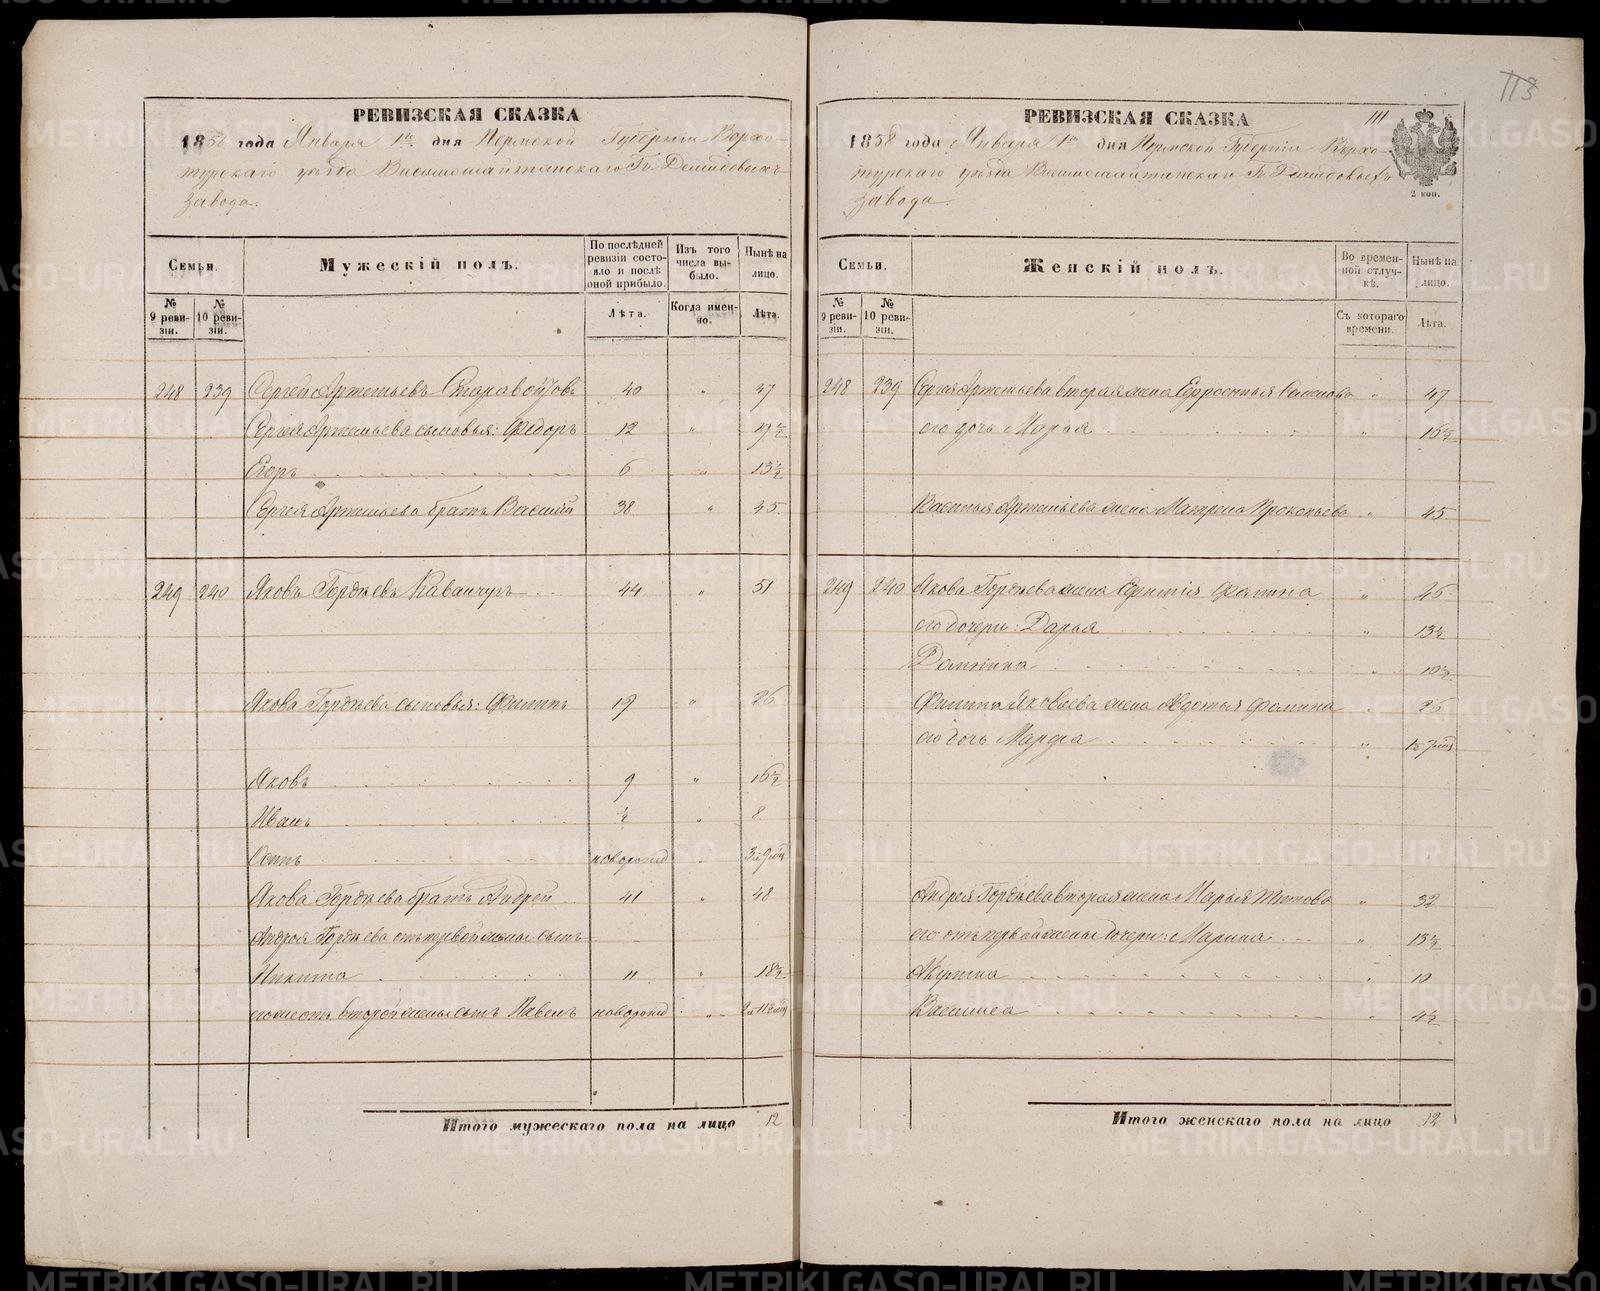 РЕВИЗСКАЯ СКАЗКА
1858 года Января 1го дня Пермской Губерніи Верхо-
турскаго уѣзда Висимошайтанскаго Гг. Демидовыхъ
Завода.
Семьи.
№ 9 ревизіи.
№ 10 ревизіи.
Мужескій полъ.
По послѣдней ревизіи состояло и послѣ оной прибыло.
Лѣта.
Изъ того числа выбыло.
Когда именно.
Нынѣ на лицо.
Лѣта.
248 239 Сергей Артемьевъ 40 " 47
Сергея Артемьева сыновья: Федоръ 12 " 19½
Егоръ 6 " 13½
Сергея Артемьева братъ Василій 38 " 45
249 240 Яковъ Гордѣевъ 44 " 51
Якова Гордѣева сыновья: Филипъ 19 " 26
Яковъ 9 " 16½
Иванъ ½ " 8
Осипъ новорожд "
Якова Гордѣева братъ Андрей 41 " 48
Андрея Гордѣева отъ первой жены сынъ
Никита 11 " 18½
его же отъ второй жены сынъ Павелъ новорожд "
Итого мужескаго пола на лицо 12
113
111
РЕВИЗСКАЯ СКАЗКА
1858 года Января 1го дня Пермской Губерніи Верхо-
турскаго уѣзда Висимошайтанскаго Гг. Демидовыхъ
Завода.
2 коп.
Семьи.
№ 9 ревизіи.
№ 10 ревизіи.
Женскій полъ.
Во временной отлучкѣ.
Съ котораго времени.
Нынѣ на лицо.
Лѣта.
248 239 Сергея Артемьева вторая жена Ефросинья Семенова " 47
его дочь Марья " 15½
Василья Артемьева жена Матрена Прокопьева " 45
249 240 Якова Гордѣева жена " 46
его дочери: Дарья " 13½
Домнина " 10½
Филипа Яковлева жена Авдотья Фомина " 25
его дочь Марфа "
Андрея Гордѣева вторая жена Марья Титова " 32
его отъ первой жены дочери: Марина " 13½
" 10
Василиса " 4½
Итого женскаго пола на лицо 12
METRIKI.GASO-URAL.RU